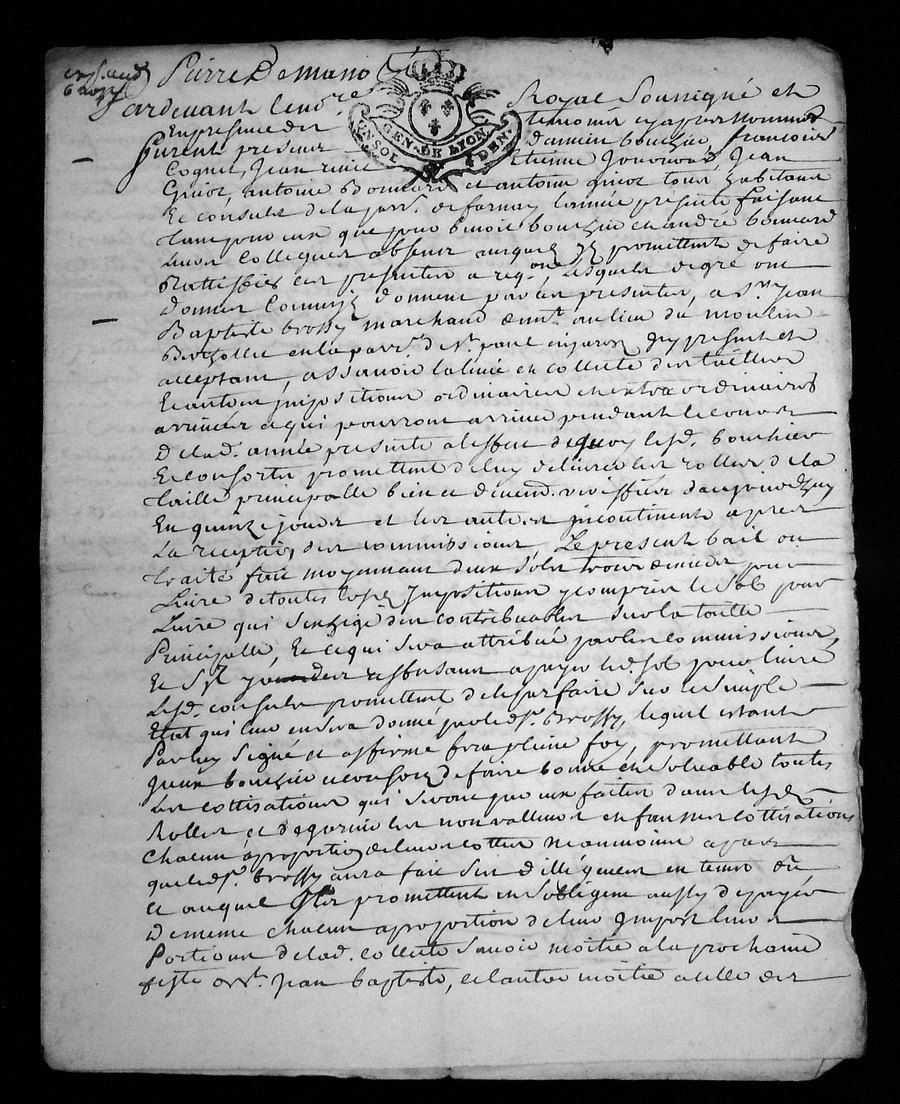 Pierre Demano
Pardevant le no.re Royal Soussigné et
En presence des temoins cy apres nommes
furent presens Damien bouchie, francois
Coguet, Jean Etienne Jean
antoine et antoine tous habitans
Et consuls de la parr.e de farnay lannée presente faisans
tans pour eux que pour benoit et andré
Leurs Collegues absens auxquels promettent de faire
Rattiffier ces presentes a req.on, Lesquels de gré ont
donné Comme ils donnent par ces presentes, a S.r Jean
Baptiste brossy marchand dem.t au lieu du moulin
en la parr.e de S.t paul en jarez Icy present et
acceptant, assavoir la levée et collecte des tailles
Et autres impositions ordinaires et extra ordinaires
arrivées et qui pourront arriver pendant le cours
De lad. année presente a leffet de quoy lesd. bouchie
Et consorts promettent de luy delivrer les rolles de la
taille principalle bien et deuem.t veriffiés daujourdhuy
En quinze jours et les autres incontinent apres
La réception des commissions, Le present bail ou
traité fait moyennant deux sols pour
Livre de toutes lesd. Impositions y compris le Sol pour
Livre qui s'exige des contribuables sur la taille
Principalle, Et ce qui sera attribué par les commissions,
Et Sy reffusans a payer led. sol pour livre
Lesd. consuls promettent de le parfaire sur le simple
Etat qui leur en sera donné par led. S.r Brossy, lequel estant
Par luy signé et affirmé fera pleine foy, promettant
de faire bonnes et solvables toutes
Les cottisations qui seront par eux faites dans lesd.
Rolles et de garnir les non valleurs et fausses cottisations
Chacun a proportion de leurs cottes neanmoins apres
que led. S.r brossy aura fait ses dilligences en tems dû
Et auquel promettent et sobligent aussy de payer
De meme chacun a proportion de leur Import leurs
Portions de lad. collecte Savoir moitié a la prochaine
feste de S.t Jean baptiste, et lautre moitié a celle des
GEN. DE LYON
UN SOL 4 DEN.